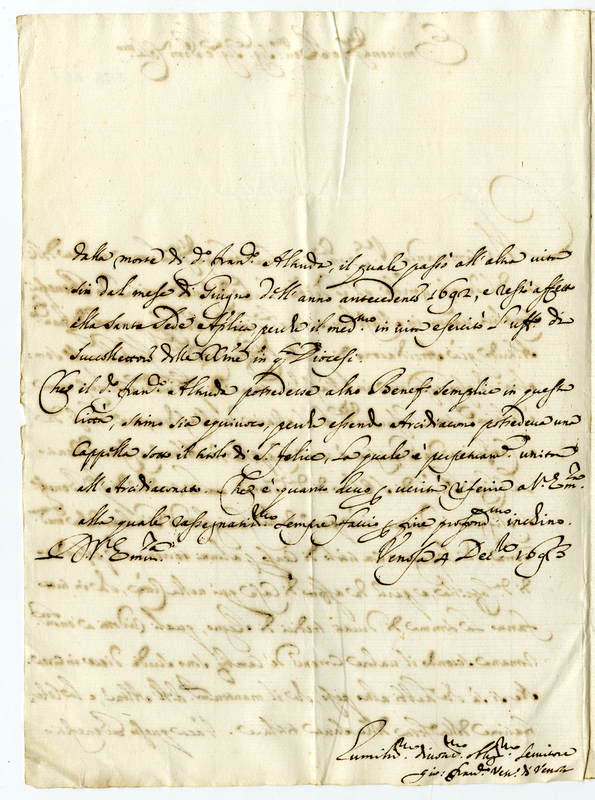 dalla morte di d.º Fran.º Alauda, il quale passò all' altra vita
sin dal mese di Giugno dell' anno antecedente 1692, e restò affetto
alla Santa Sede Aplica perche il med.mo in vita esercitò l'uff.º di
Succollettore delle in q.ª Diocesi.
Che il d.º Fran.º Alauda possedesse altro Benef.º semplice in questa
Città, stimo sia equivoco, perche essendo Arcidiacono possedeva una
Cappella sotto il titolo di S. Felice, la quale è perpetuam.e unita
all' Arcidiaconato. Che è quanto devo p. verità riferire a V.ª Em.za
alla quale rassegnatiss.mo sempre faccio p. fine profond.mo inchino.
D. V.ª Emin.za
Venosa 4 Dec.bre 1693
Humiliss.mo divotiss.mo obligatiss.mo Servitore
Gio: Fran.º Vesc.º di Venosa